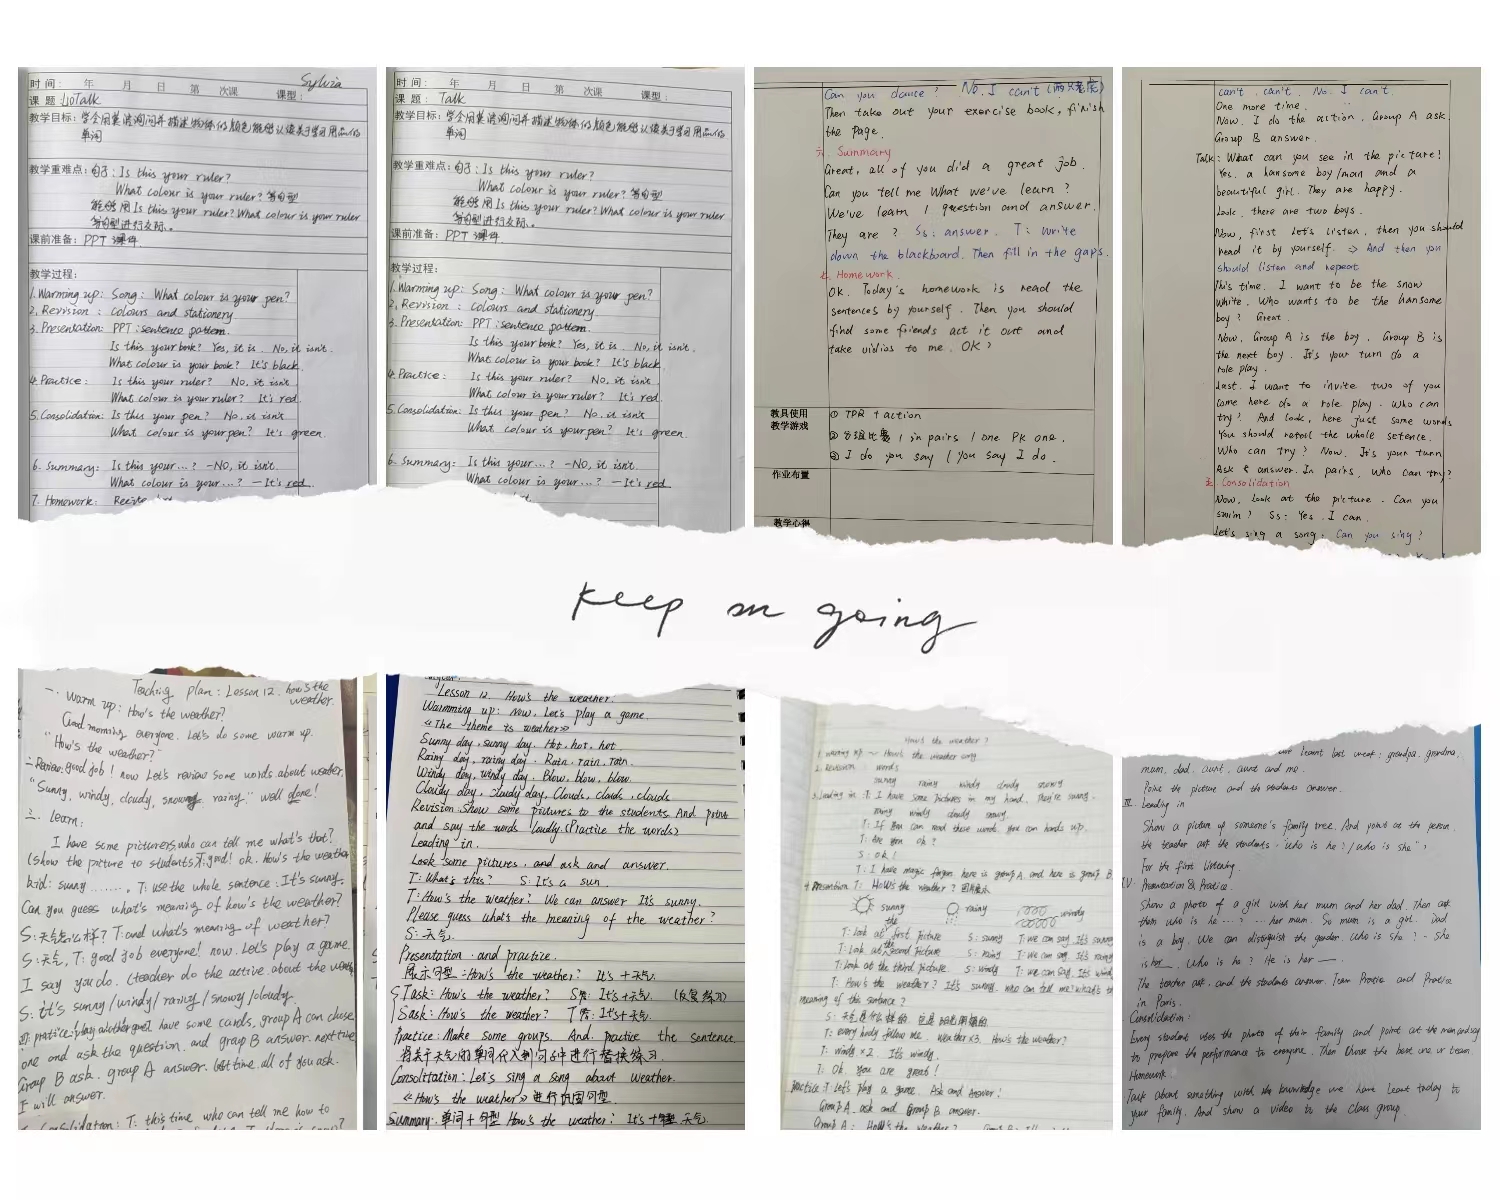 Sylvia
时间： 年 月 日 第 次课 课型：
课题： Talk
教学目标：
单词
教学重难点：句子：Is this your ruler?
What colour is your ruler? 等句型
能够用 Is this your ruler? What colour is your ruler
等句型进行交际。
课前准备：PPT 课件.
教学过程：
1. Warming up: Song: What colour is your pen?
2. Revision: colours and stationery
3. Presentation: PPT: sentence pattern.
Is this your book? Yes, it is. No, it isn't.
What colour is your book? It's black.
4. Practice: Is this your ruler? No, it isn't.
What colour is your ruler? It's red.
5. Consolidation: Is this your pen? No, it isn't
What colour is your pen? It's green.
6. Summary: Is this your...? -No, it isn't.
What colour is your...? —It's red.
7. Homework:
时间： 年 月 日 第 次课 课型：
课题： Talk
教学目标：
单词
教学重难点：句子：Is this your ruler?
What colour is your ruler? 等句型
能够用 Is this your ruler? What colour is your ruler
等句型进行交际。
课前准备：PPT 课件.
教学过程：
1. Warming up: Song: What colour is your pen?
2. Revision: colours and stationery
3. Presentation: PPT: sentence pattern.
Is this your book? Yes, it is. No, it isn't.
What colour is your book? It's black.
4. Practice: Is this your ruler? No, it isn't.
What colour is your ruler? It's red.
5. Consolidation: Is this your pen? No, it isn't
What colour is your pen? It's green.
6. Summary: Is this your...? -No, it isn't.
What colour is your...? —It's red.
Can you dance? No. I can't (两只老虎)
Then take out your exercise book, finish
the page.
六. Summary
Great, all of you did a great job.
Can you tell me What we've learn?
We've learn 1 question and answer.
They are? Ss: answer. T: write
down the blackboard. Then fill in the gaps.
七. Homework.
OK. Today's homework is read the
sentences by yourself. Then you should
find some friends act it out and
take vidios to me. OK?
教具使用
教学游戏
① TPR + action
② 分组比赛 / in pairs / one PK one.
③ I do you say / you say I do.
作业布置
教学心得
can't. can't. No. I can't.
One more time.
Now. I do the action. Group A ask.
Group B answer.
Talk: What can you see in the picture!
Yes. a hansome boy/man and a
beautiful girl. They are happy.
Look. there are two boys.
Now, first let's listen, then you should
read it by yourself. => And then you
should listen and repeat
This time. I want to be the snow
white. Who wants to be the hansome
boy? Great.
Now, Group A is the boy. Group B is
the next boy. It's your turn do a
role play.
Last. I want to invite two of you
come here do a role play. Who can
try? And look, here just some words
You should retell the whole setence.
Who can try? Now. It's your turn
Ask & answer. In pairs, who can try?
五. Consolidation
Now. Look at the picture. Can you
swim? Ss: Yes. I can.
Let's sing a song. Can you sing?
keep on going
Teaching plan: Lesson 12. how's the
weather.
一. Warm up: How's the weather?
Good morning everyone. Let's do some warm up.
"How's the weather?"
二. Review: good job! now Let's review some words about weather,
"Sunny, windy, cloudy, snowy, rainy." well done!
三. Learn:
I have some picturers, who can tell me what's that?
(show the picture to students) T: good! ok. How's the weather
kid: sunny ....... T: use the whole sentence: It's sunny.
Can you guess what's meaning of how's the weather?
S: 天气怎么样? T: and what's meaning of weather?
S: 天气, T: good job everyone! now. Let's play a game.
I say you do. (teacher do the active about the
S: it's sunny/windy/rainy/snowy/cloudy.
have some cards, group A can chose
one and ask the question, and group B answer. next time
Group B ask. group A answer. last time all of you ask.
I will answer.
T: this time, who can tell me how to
Lesson 12. How's the weather.
Warmming up: Now, Let's play a game.
《The theme is weather》
Sunny day, sunny day. Hot, hot, hot.
Rainy day, rainy day. Rain, rain, rain.
Windy day, windy day. Blow, blow, blow.
Cloudy day, cloudy day, Clouds, clouds, clouds
Revision: Show some pictures to the students. And point
and say the words loudly. (Practice the words)
Leading in.
Look some pictures, and ask and answer.
T: What's this? S: It's a sun.
T: How's the weather? We can answer It's sunny.
Please guess what's the meaning of the weather?
S: 天气.
Presentation and practice.
展示句型: How's the weather? It's + 天气.
Task: How's the weather? S答: It's + 天气. (反复练习)
Sask: How's the weather? T答: It's + 天气.
Practice: Make some groups. And practice the sentence.
将关于天气的单词代入到句子中进行替换练习.
Consolitation: Let's sing a song about weather.
《How's the weather》进行巩固句型.
Summary: 单词 + 句型 How's the weather? It's + 天气.
How's the weather?
2. Revision: words
sunny rainy windy cloudy snowy
3. Leading in: T: I have some pictures in my hand. They're sunny.
rainy windy cloudy snowy.
T: If you can read these word. you can hands up.
T: Are you ok?
S: ok!
T: I have magic finger. here is group A and here is group B.
4. Presentation T: How's the weather? 图片展示
sunny rainy windy
T: Look at the first picture S: sunny T: we can say It's sunny
T: Look at second picture S: rainy T: we can say It's rainy
T: Look at the third picture S: windy T: we can say. It's windy
T: How's the weather? It's sunny. who can tell me what's the
meaning of this sentence?
T: every body follow me. weather x3. How's the weather?
T: windy x2. It's windy.
T: Ok. You are great!
Practice: T: Let's play a game. Ask and Answer!
Group A. ask and Group B answer.
Group A: How's the weather?
we learnt last week: grandpa, grandma,
mum, dad, aunt and me.
Point the picture and the students answer.
III. Leading in
Show a picture of someone's family tree. And point at the person.
the teacher ask the students: "who is he? / who is she"?
For the first listening.
IV. Presentation & Practice.
Show a photo of a girl with her mum and her dad. Then ask
them who is he ...? ... her mum. So mum is a girl. Dad
is a boy. We can distinguish the gender. Who is she? - She
is her__. Who is he? He is her __.
The teacher ask, and the students answer. Team Practice and Practice
in Pairs.
Consolidation:
Every student uses the photo of their family and point at the mum and say
to prepare the performance to everyone. Then Chose the best one or team.
Homework.
Talk about something with the knowledge we have leant today to
your family. And show a video to the class group.